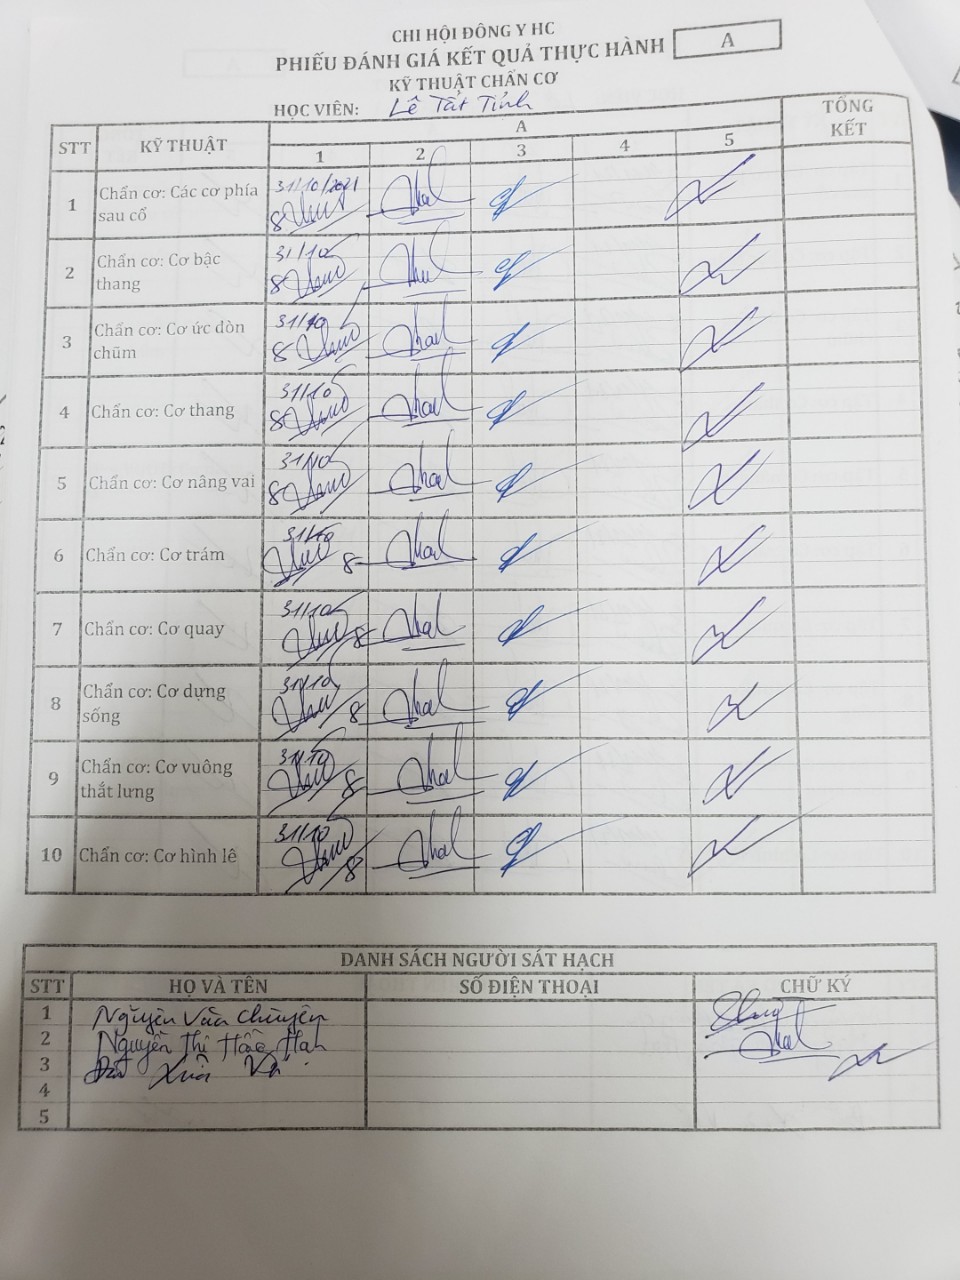 CHI HỘI ĐÔNG Y HC
PHIẾU ĐÁNH GIÁ KẾT QUẢ THỰC HÀNH
A
KỸ THUẬT CHẨN CƠ
HỌC VIÊN: Lê Tất Tỉnh
STT KỸ THUẬT A TỔNG KẾT
1 2 3 4 5
1 Chẩn cơ: Các cơ phía sau cổ 31/10/2021 8
2 Chẩn cơ: Cơ bậc thang 31/10 8
3 Chẩn cơ: Cơ ức đòn chũm 31/10 8
4 Chẩn cơ: Cơ thang 31/10 8
5 Chẩn cơ: Cơ nâng vai 31/10 8
6 Chẩn cơ: Cơ trám 31/10 8
7 Chẩn cơ: Cơ quay 31/10 8
8 Chẩn cơ: Cơ dựng sống 31/10 8
9 Chẩn cơ: Cơ vuông thắt lưng 31/10 8
10 Chẩn cơ: Cơ hình lê 31/10 8
DANH SÁCH NGƯỜI SÁT HẠCH
STT HỌ VÀ TÊN SỐ ĐIỆN THOẠI CHỮ KÝ
1 Nguyễn Văn Chuyên
2 Nguyễn Thị Hảo
3 Xuân
4
5